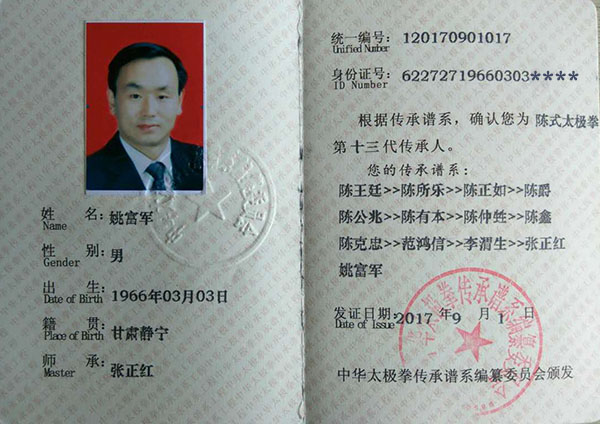 姓 名: 姚富军
Name
性 别: 男
Gender
出 生: 1966年03月03日
Date of Birth
籍 贯: 甘肃静宁
Place of Birth
师 承: 张正红
Master
统一编号: 120170901017
Unified Number
身份证号: 62272719660303****
ID Number
根据传承谱系,确认您为 陈式太极拳
第十三代传承人。
您的传承谱系:
陈王廷>>陈所乐>>陈正如>>陈爵
陈公兆>>陈有本>>陈仲甡>>陈鑫
陈克忠>>范鸿信>>李渭生>>张正红
姚富军
发证日期: 2017年 9 月 1 日
Date of Issue
中华太极拳传承谱系编纂委员会颁发